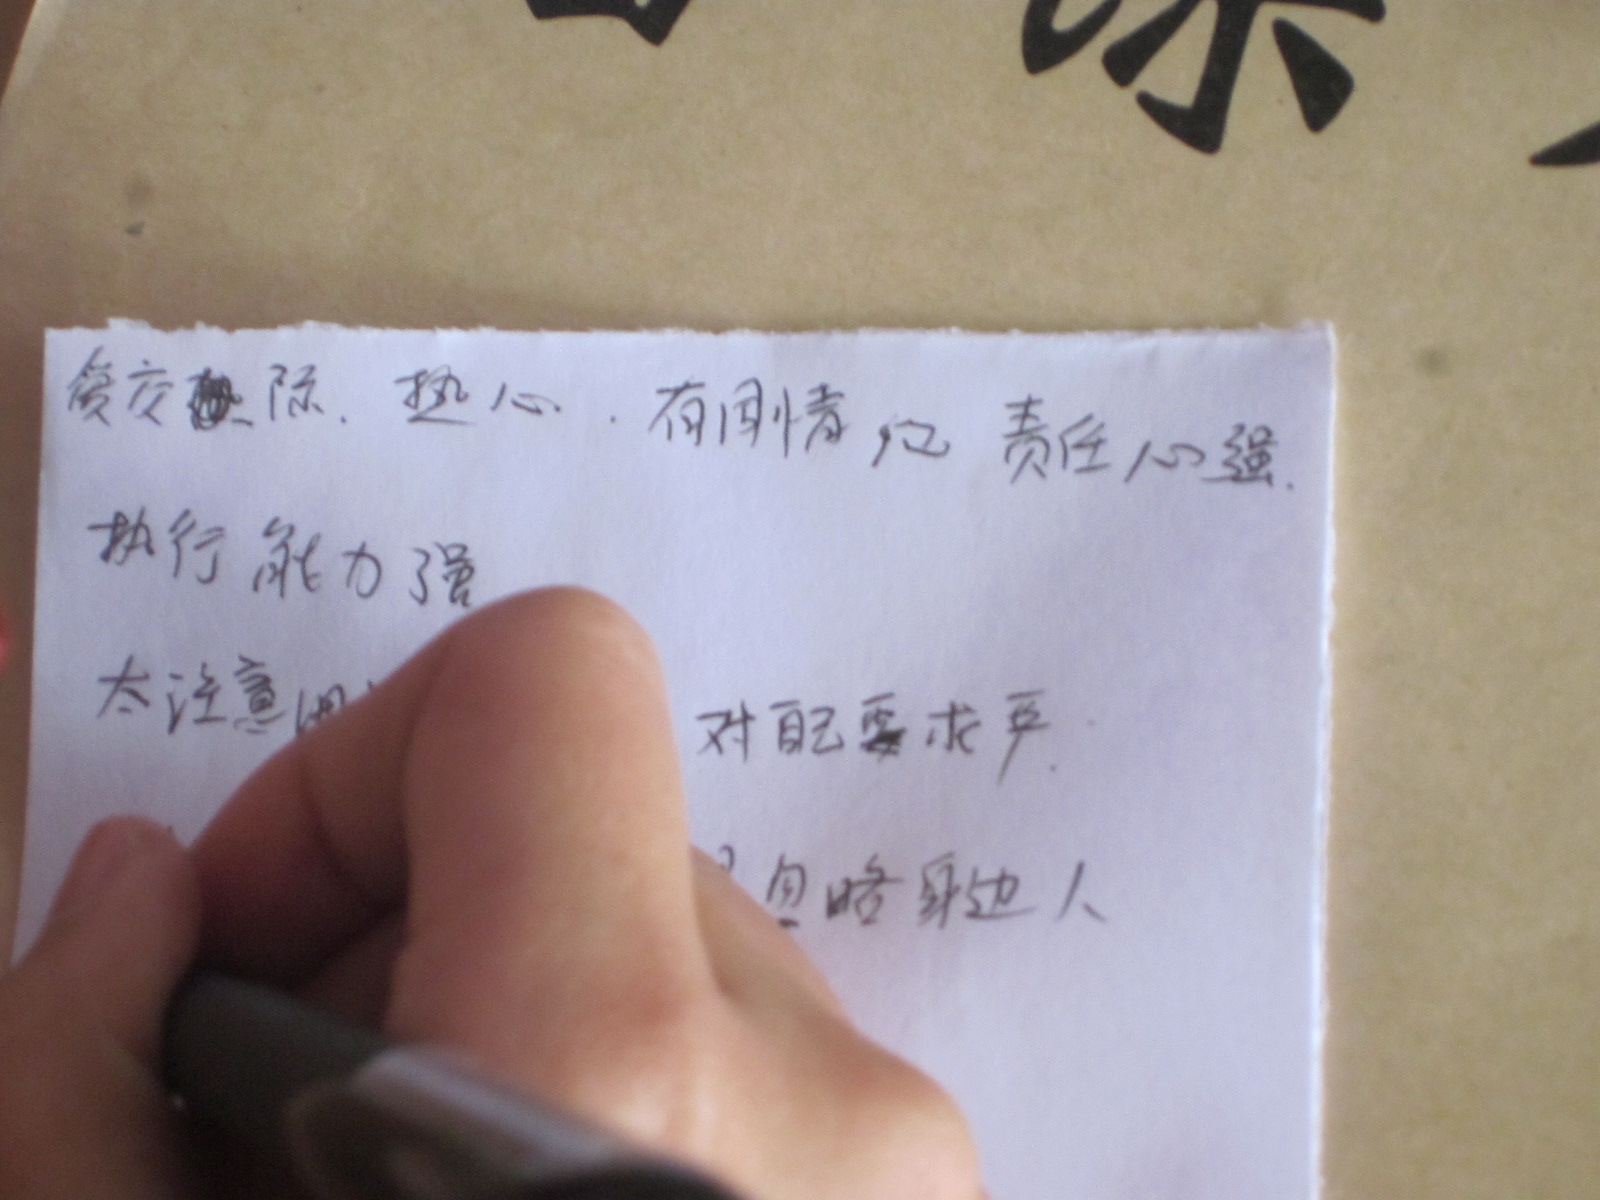 爱交际.热心.有同情心 责任心强.
执行能力强
太注意细 对自己要求严.
忽略身边人